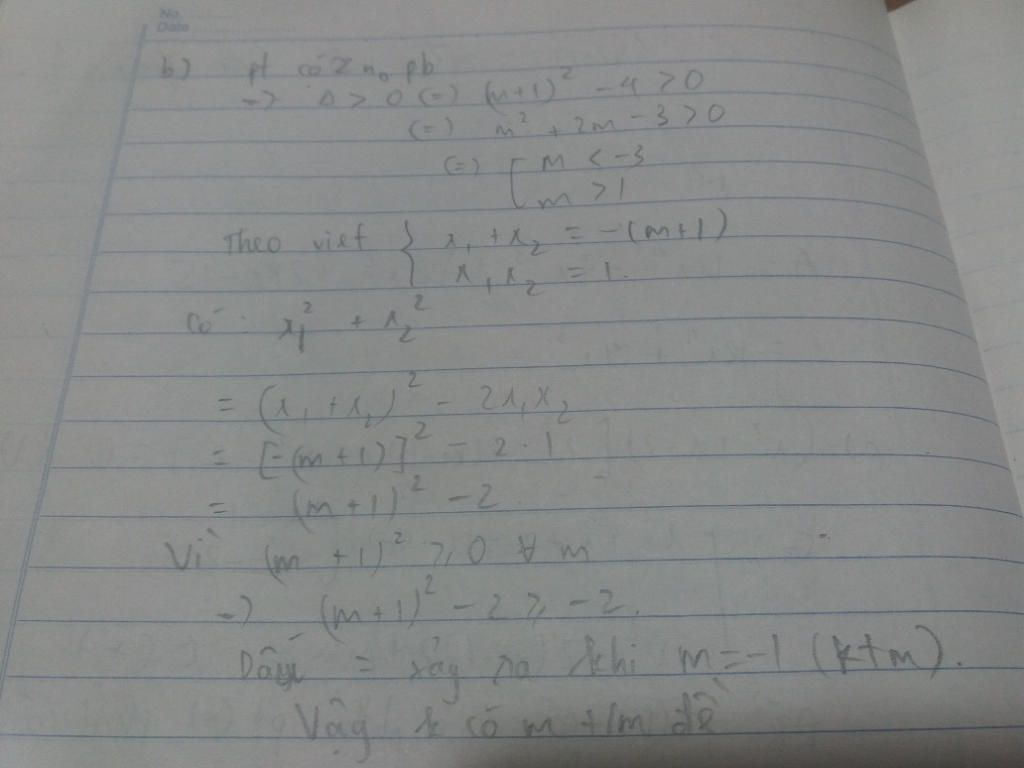 No.
Date
b) pt có 2 no pb
-> Δ > 0 (=) (m+1)² - 4 > 0
(=) m² + 2m - 3 > 0
(=) [ m < -3
m > 1
Theo viet { x₁ + x₂ = -(m+1)
x₁x₂ = 1.
Có : x₁² + x₂²
= (x₁ + x₂)² - 2x₁x₂
= [-(m+1)]² - 2 . 1
= (m+1)² - 2
Vì (m+1)² ≥ 0 ∀ m
-> (m+1)² - 2 ≥ -2.
Dấu = xảy ra khi m = -1 (k t m).
Vậy k có m t/m đề